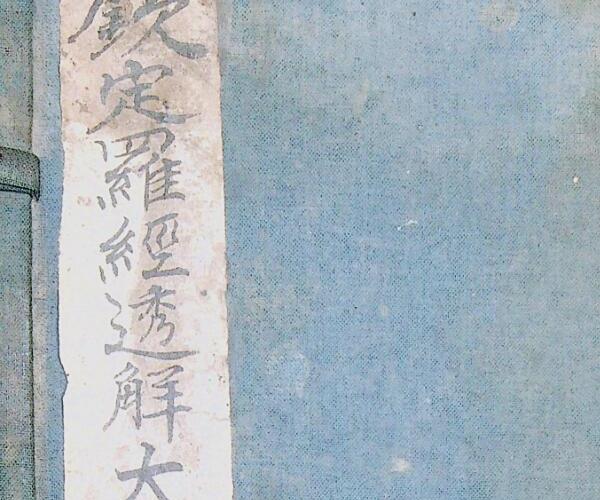 欽定羅經透解大